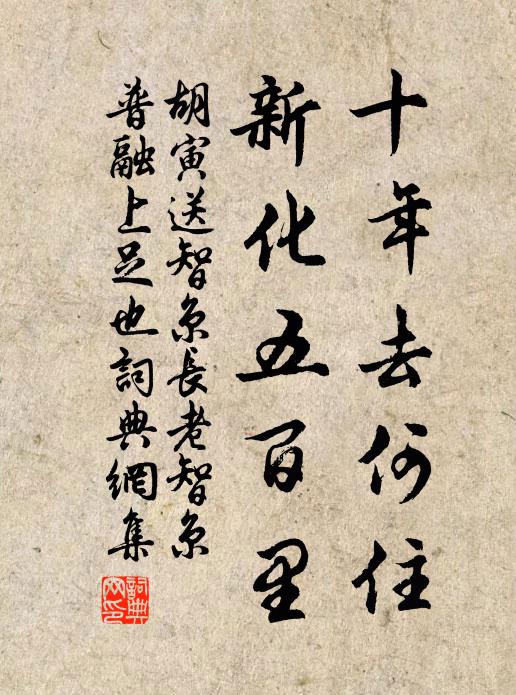 十年去何住
新化五百里
胡寅送智京長老智京
普融上足也詞典網集
詞典網印